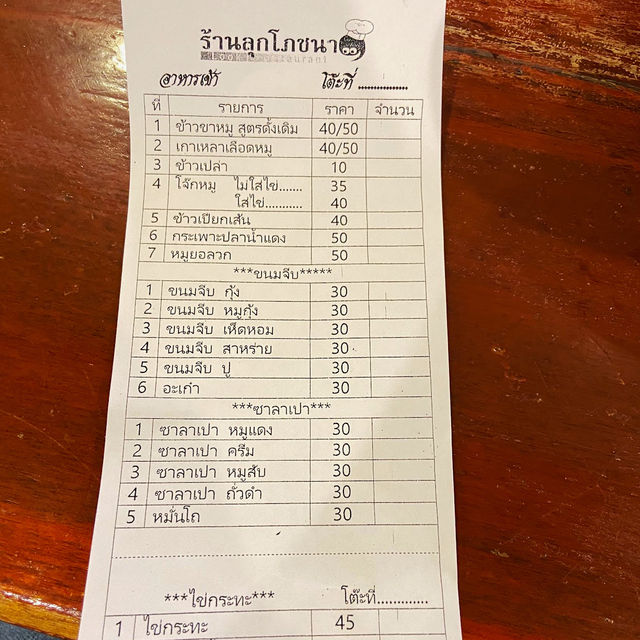 ร้านลุกโภชนา
อาหารเช้า โต๊ะที่ ...............
ที่ รายการ ราคา จำนวน
1 ข้าวขาหมู สูตรดั้งเดิม 40/50
2 เกาเหลาเลือดหมู 40/50
3 ข้าวเปล่า 10
4 โจ๊กหมู ไม่ใส่ไข่....... 35
ใส่ไข่........... 40
5 ข้าวเปียกเส้น 40
6 กระเพาะปลาน้ำแดง 50
7 หมูยอลวก 50
***ขนมจีบ*****
1 ขนมจีบ กุ้ง 30
2 ขนมจีบ หมูกุ้ง 30
3 ขนมจีบ เห็ดหอม 30
4 ขนมจีบ สาหร่าย 30
5 ขนมจีบ ปู 30
6 ฮะเก๋า 30
***ซาลาเปา***
1 ซาลาเปา หมูแดง 30
2 ซาลาเปา ครีม 30
3 ซาลาเปา หมูสับ 30
4 ซาลาเปา ถั่วดำ 30
5 หมั่นโถ 30
***ไข่กระทะ*** โต๊ะที่.............
1 ไข่กระทะ 45